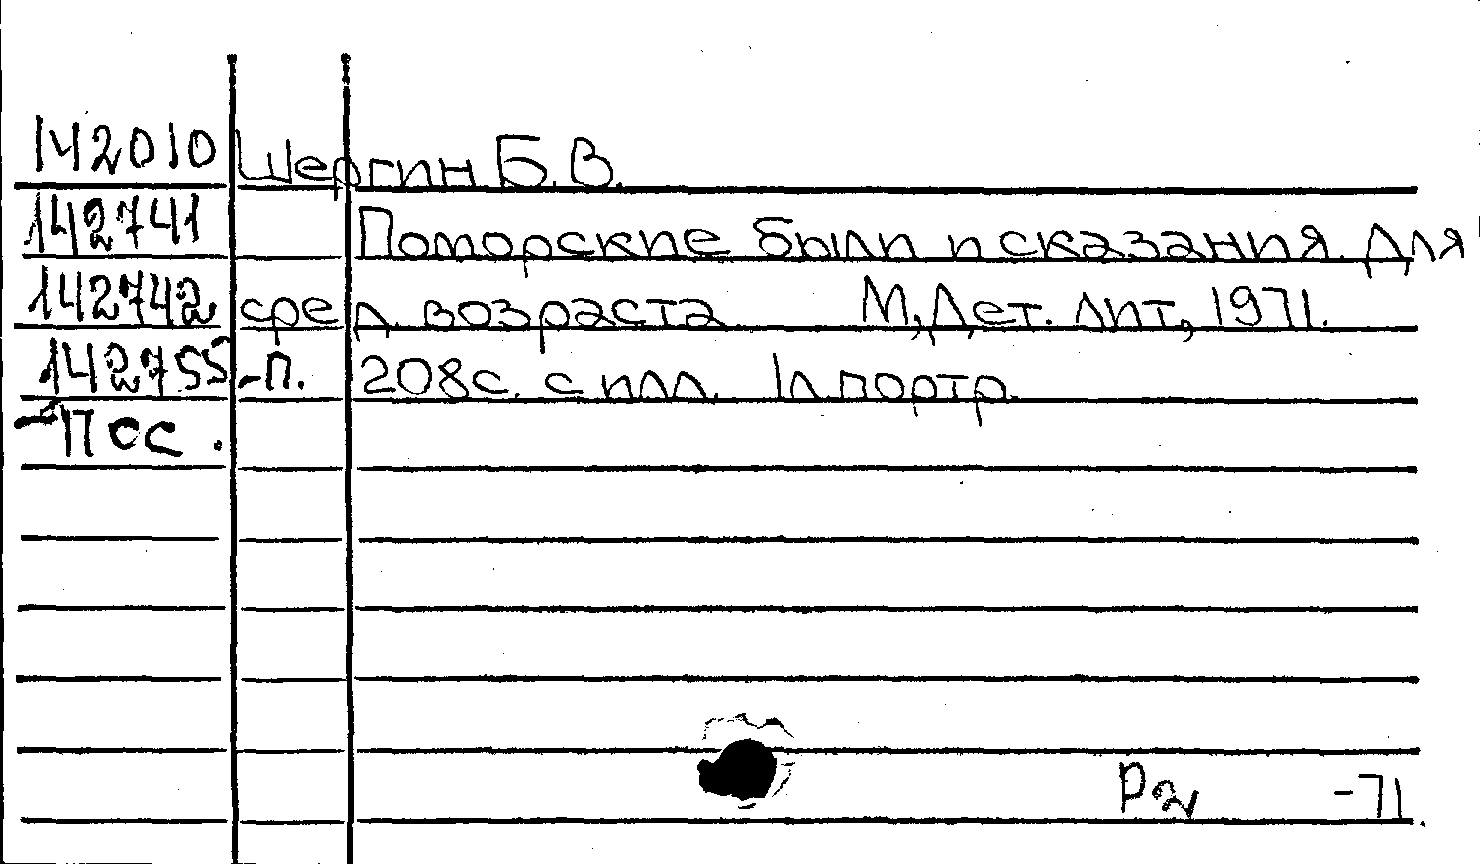 142010 Шергин Б.В.
142741 Поморские были и сказания. Для
142742 сред. возраста М, Дет. лит, 1971.
142755 -п. 208с. с илл. 1л.портр.
-Пос.
Р2 -71.